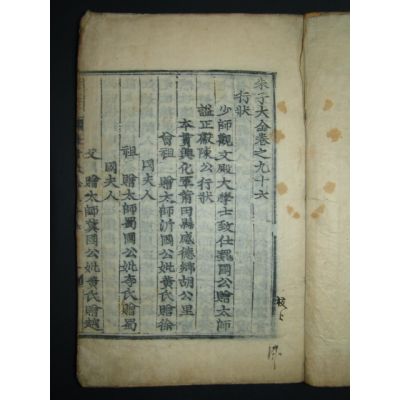 朱子大全卷之九十六
行狀
少師觀文殿大學士致仕魏國公贈太師
諡正獻陳公行狀
本貫興化軍莆田縣感德鄉胡公里
曾祖 贈太師沂國公妣黃氏贈徐
國夫人
祖 贈太師蜀國公妣李氏贈蜀
國夫人
父 贈太師冀國公妣黃氏贈越